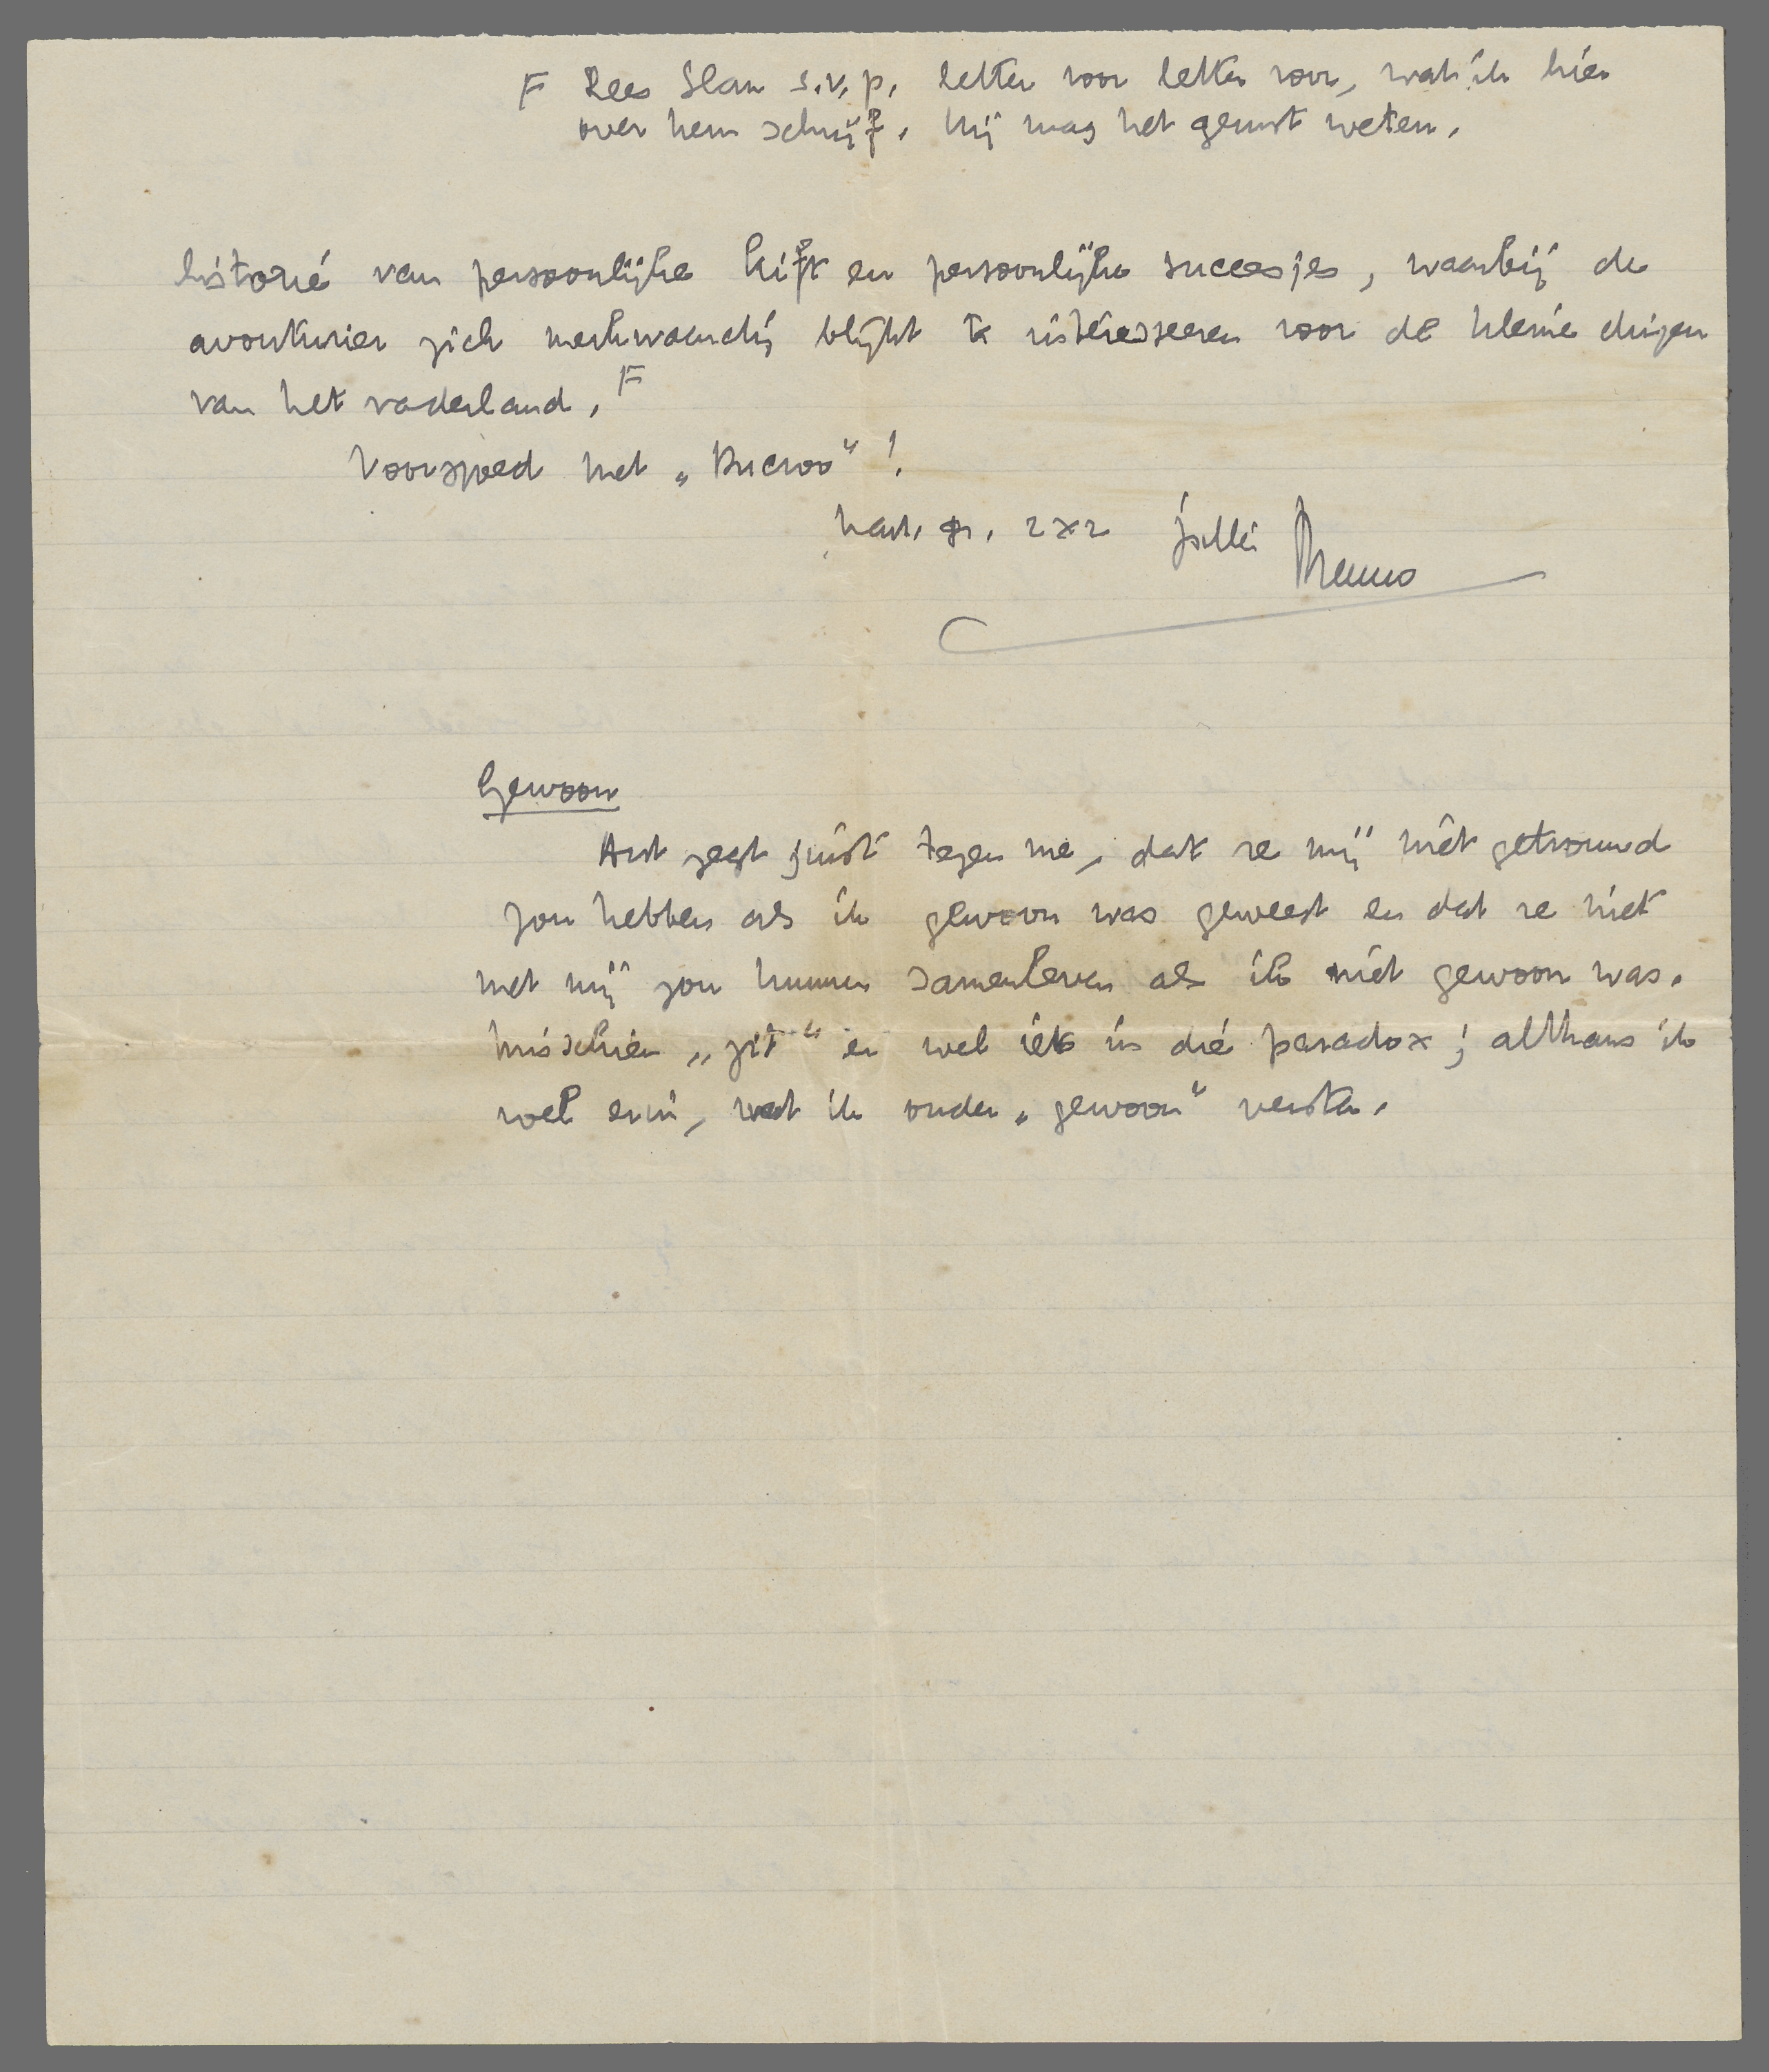 F Lees Slau s.v.p. letter voor letter voor, wat ik hier
over hem schrijf. Hij mag het gerust weten.
historie van persoonlijke kift en persoonlijke succesjes, waarbij de
avonturier zich merkwaardig blijkt te interesseeren voor de kleine dingen
van het vaderland. F
Voorspoed met „Ducroo"!
hart. gr. 2x2 jullie Menno
Gewoon
Ant zegt juist tegen me, dat ze mij niet getrouwd
zou hebben als ik gewoon was geweest en dat ze niet
met mij zou kunnen samenleven als ik niet gewoon was.
Misschien „zit" er wel iets in die paradox; althans ik
voel erin, wat ik onder „gewoon" versta.